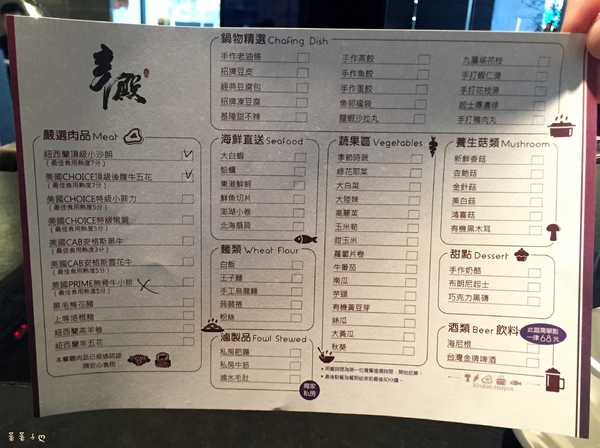 辛殿
鍋物精選 Chafing Dish
手作老油條
招牌豆皮
經典豆腐包
招牌凍豆腐
基隆甜不辣
手作燕餃
手作魚餃
手作蛋餃
魚卵福袋
龍蝦沙拉丸
九層塔花枝
手打蝦仁滑
手打花枝滑
起士爆漿球
手打鴨肉丸
嚴選肉品 Meat
紐西蘭頂級小沙朗
(最佳食用熟度7分)
美國CHOICE頂級後腹牛五花
(最佳食用熟度7分)
美國CHOICE特級小菲力
(最佳食用熟度5分)
美國CHOICE特級
(最佳食用熟度5分)
美國CAB安格斯黑牛
(最佳食用熟度3分)
美國CAB安格斯雪花牛
(最佳食用熟度5分)
美國PRIME無骨牛小排
(最佳食用熟度5分)
黑毛梅花豬
上等培根豬
紐西蘭羔羊卷
紐西蘭羊五花
本餐廳肉品已經過認證
請安心食用
海鮮直送 Seafood
大白蝦
蛤蠣
東港鮮蚵
鮮魚切片
澎湖小卷
北海扇貝
麵類 Wheat Flour
白飯
王子麵
手工烏龍麵
蒟蒻捲
粉絲
滷製品 Fowl Stewed
私房肥腸
私房牛筋
滷水毛肚
獨家
私房
蔬果區 Vegetables
季節時蔬
綠花耶菜
大白菜
大陸妹
高麗菜
玉米筍
甜玉米
蘿蔔片卷
牛番茄
南瓜
芋頭
有機黃豆芽
絲瓜
大黃瓜
秋葵
養生菇類 Mushroom
新鮮香菇
杏鮑菇
金針菇
美白菇
鴻喜菇
有機黑木耳
甜點 Dessert
手作奶酪
布朗尼起士
巧克力黑磚
酒類 Beer 飲料
此區需單點
一律68元
海尼根
台灣金牌啤酒
Xindian Hotpot